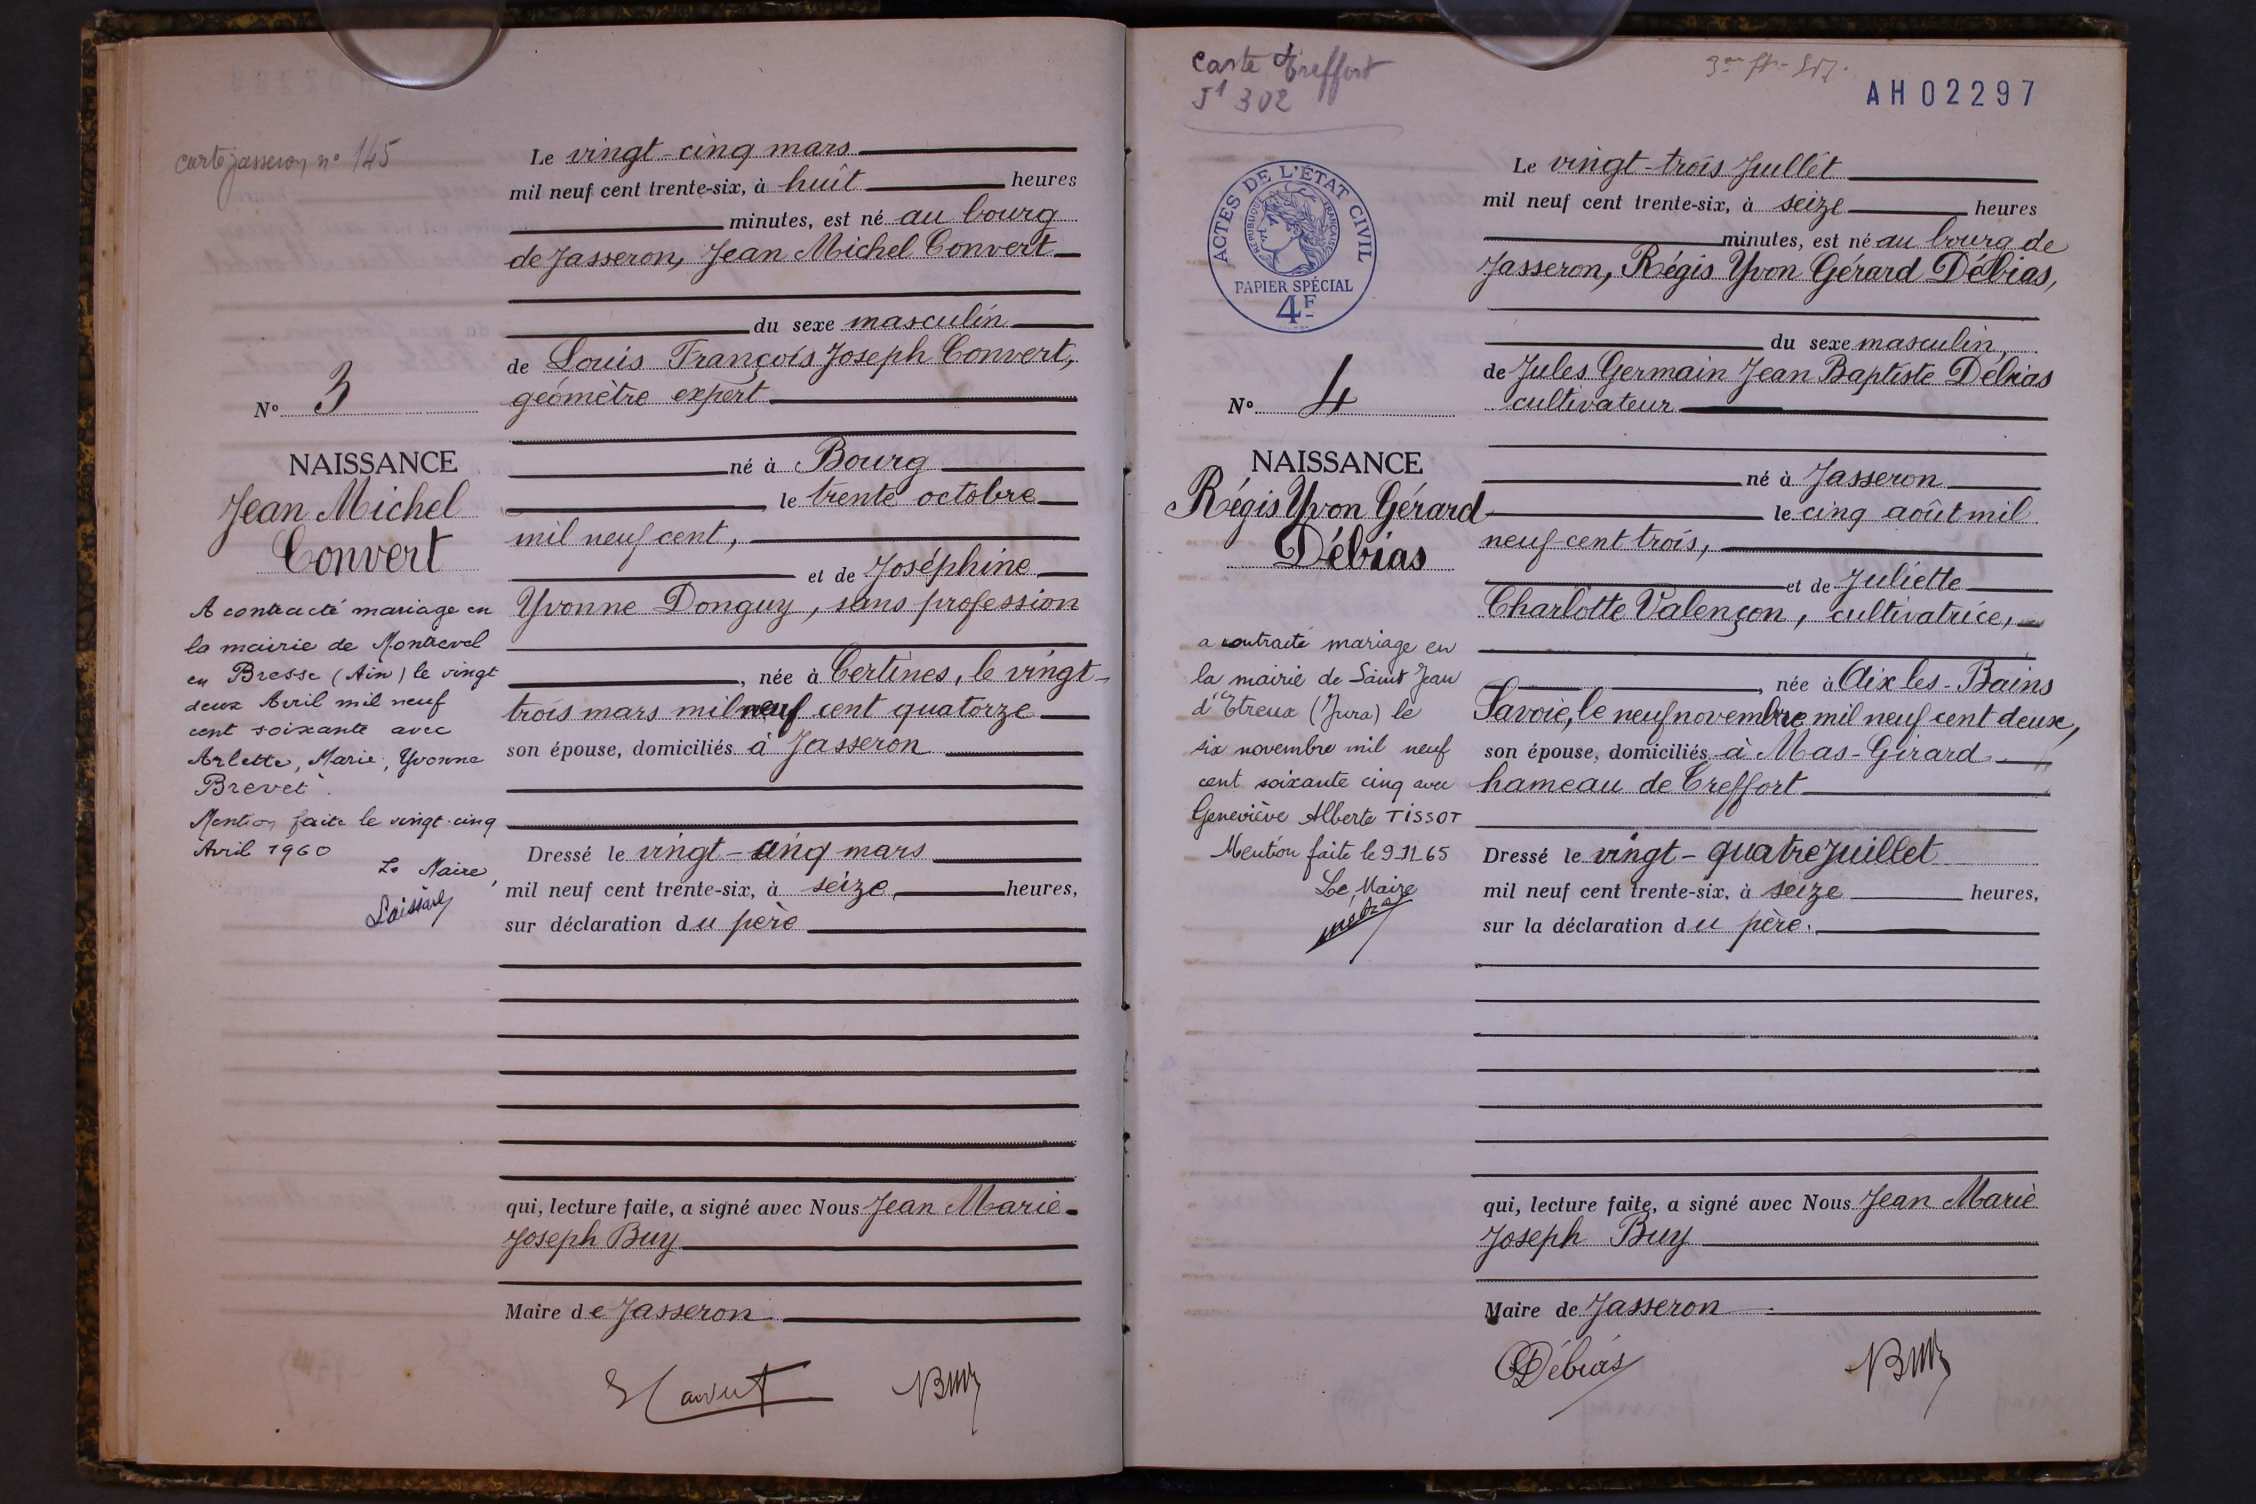 carte Jasseron n° 145
Le vingt-cinq mars
mil neuf cent trente-six, à huit heures
minutes, est né au bourg
de Jasseron, Jean Michel Convert
du sexe masculin
de Louis François Joseph Convert,
géomètre expert
né à Bourg
le trente octobre
mil neuf cent,
et de Joséphine
Yvonne Donguy, sans profession
, née à Certines, le vingt-
trois mars mil neuf cent quatorze
son épouse, domiciliés à Jasseron
Dressé le vingt-cinq mars
mil neuf cent trente-six, à seize heures,
sur déclaration du père
qui, lecture faite, a signé avec Nous Jean Marie
Joseph Buy
Maire de Jasseron
Convert
Buy
N° 3
NAISSANCE
Jean Michel
Convert
A contracté mariage en
la mairie de Montrevel
en Bresse (Ain) le vingt
deux Avril mil neuf
cent soixante avec
Arlette, Marie, Yvonne
Brevet.
Mention faite le vingt-cinq
Avril 1960
Le Maire,
carte Treffort
J1 302
AH02297
ACTES DE L'ÉTAT CIVIL
RÉPUBLIQUE FRANÇAISE
PAPIER SPÉCIAL
4F
Le vingt-trois Juillet
mil neuf cent trente-six, à seize heures
minutes, est né au bourg de
Jasseron, Régis Yvon Gérard Débias,
du sexe masculin,
de Jules Germain Jean Baptiste Débias
cultivateur
né à Jasseron
le cinq août mil
neuf cent trois,
et de Juliette
Charlotte Valençon, cultivatrice,
, née à Aix les-Bains
Savoie, le neuf novembre mil neuf cent deux,
son épouse, domiciliés à Mas-Girard
hameau de Treffort
Dressé le vingt-quatre Juillet
mil neuf cent trente-six, à seize heures,
sur la déclaration du père.
qui, lecture faite, a signé avec Nous Jean Marie
Joseph Buy
Maire de Jasseron
Débias
Buy
N° 4
NAISSANCE
Régis Yvon Gérard
Débias
a contracté mariage en
la mairie de Saint Jean
d'Etreux (Jura) le
six novembre mil neuf
cent soixante cinq avec
Geneviève Alberte TISSOT
Mention faite le 9-11-65
Le Maire